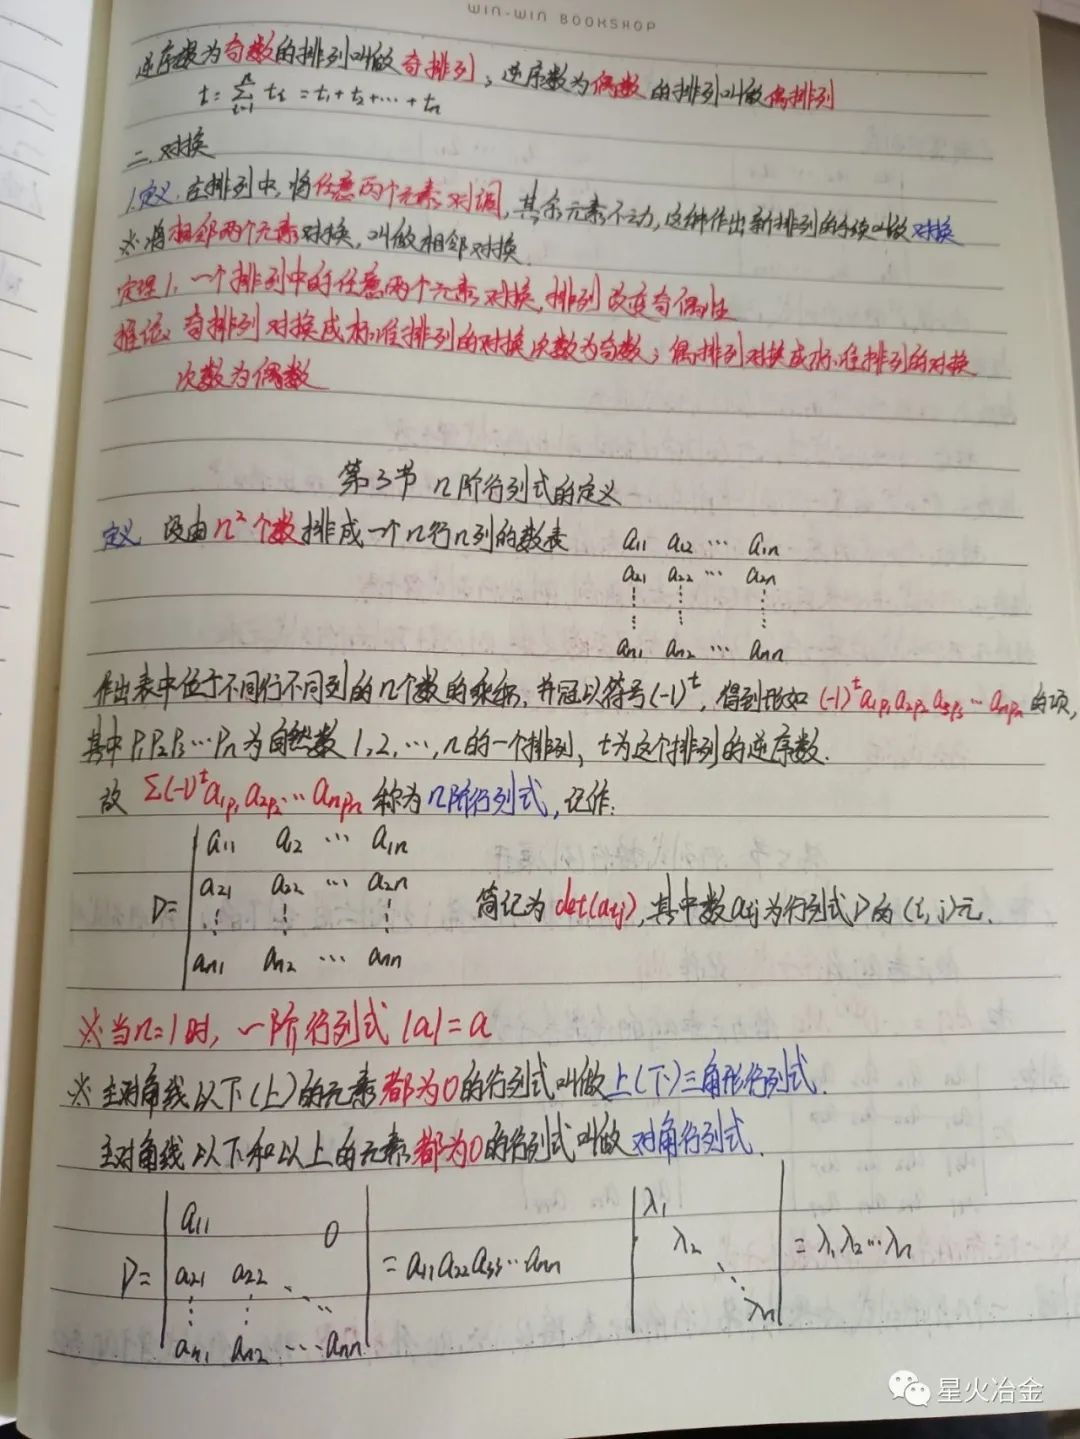 WIN-WIN BOOKSHOP
逆序数为奇数的排列叫做奇排列；逆序数为偶数的排列叫做偶排列
t=∑_{i=1}^{n} t_i = t_1+t_2+⋯+t_n
二.对换
1.定义.在排列中,将任意两个元素对调,其余元素不动,这种作出新排列的手续叫做对换
※将相邻两个元素对换,叫做相邻对换.
定理1.一个排列中的任意两个元素对换,排列改变奇偶性
推论:奇排列对换成标准排列的对换次数为奇数;偶排列对换成标准排列的对换
次数为偶数
第3节 n阶行列式的定义
定义 设由n²个数排成一个n行n列的数表 a_11 a_12 ⋯ a_1n
a_21 a_22 ⋯ a_2n
⋮ ⋮ ⋮
a_n1 a_n2 ⋯ a_nn
作出表中位于不同行不同列的n个数的乘积,并冠以符号(-1)^t,得到形如 (-1)^t a_1p_1 a_2p_2 a_3p_3 ⋯ a_np_n 的项,
其中 P_1P_2P_3⋯P_n 为自然数 1,2,⋯,n的一个排列, t为这个排列的逆序数.
故 ∑(-1)^t a_1p_1 a_2p_2 ⋯ a_np_n 称为n阶行列式,记作:
| a_11 a_12 ⋯ a_1n
a_21 a_22 ⋯ a_2n
D= ⋮ ⋮ ⋮ 简记为det(a_ij),其中数a_ij为行列式D的(i,j)元.
a_n1 a_n2 ⋯ a_nn
※当n=1时,一阶行列式 |a|=a
※主对角线以下(上)的元素都为0的行列式叫做上(下)三角形行列式.
主对角线以下和以上的元素都为0的行列式叫做对角行列式.
| a_11 0 | | λ_1 |
D= a_21 a_22 ⋱ = a_11a_22a_33⋯a_nn λ_2 = λ_1λ_2⋯λ_n
⋮ ⋮ ⋱
a_n1 a_n2 ⋯ a_nn λ_n
星火冶金